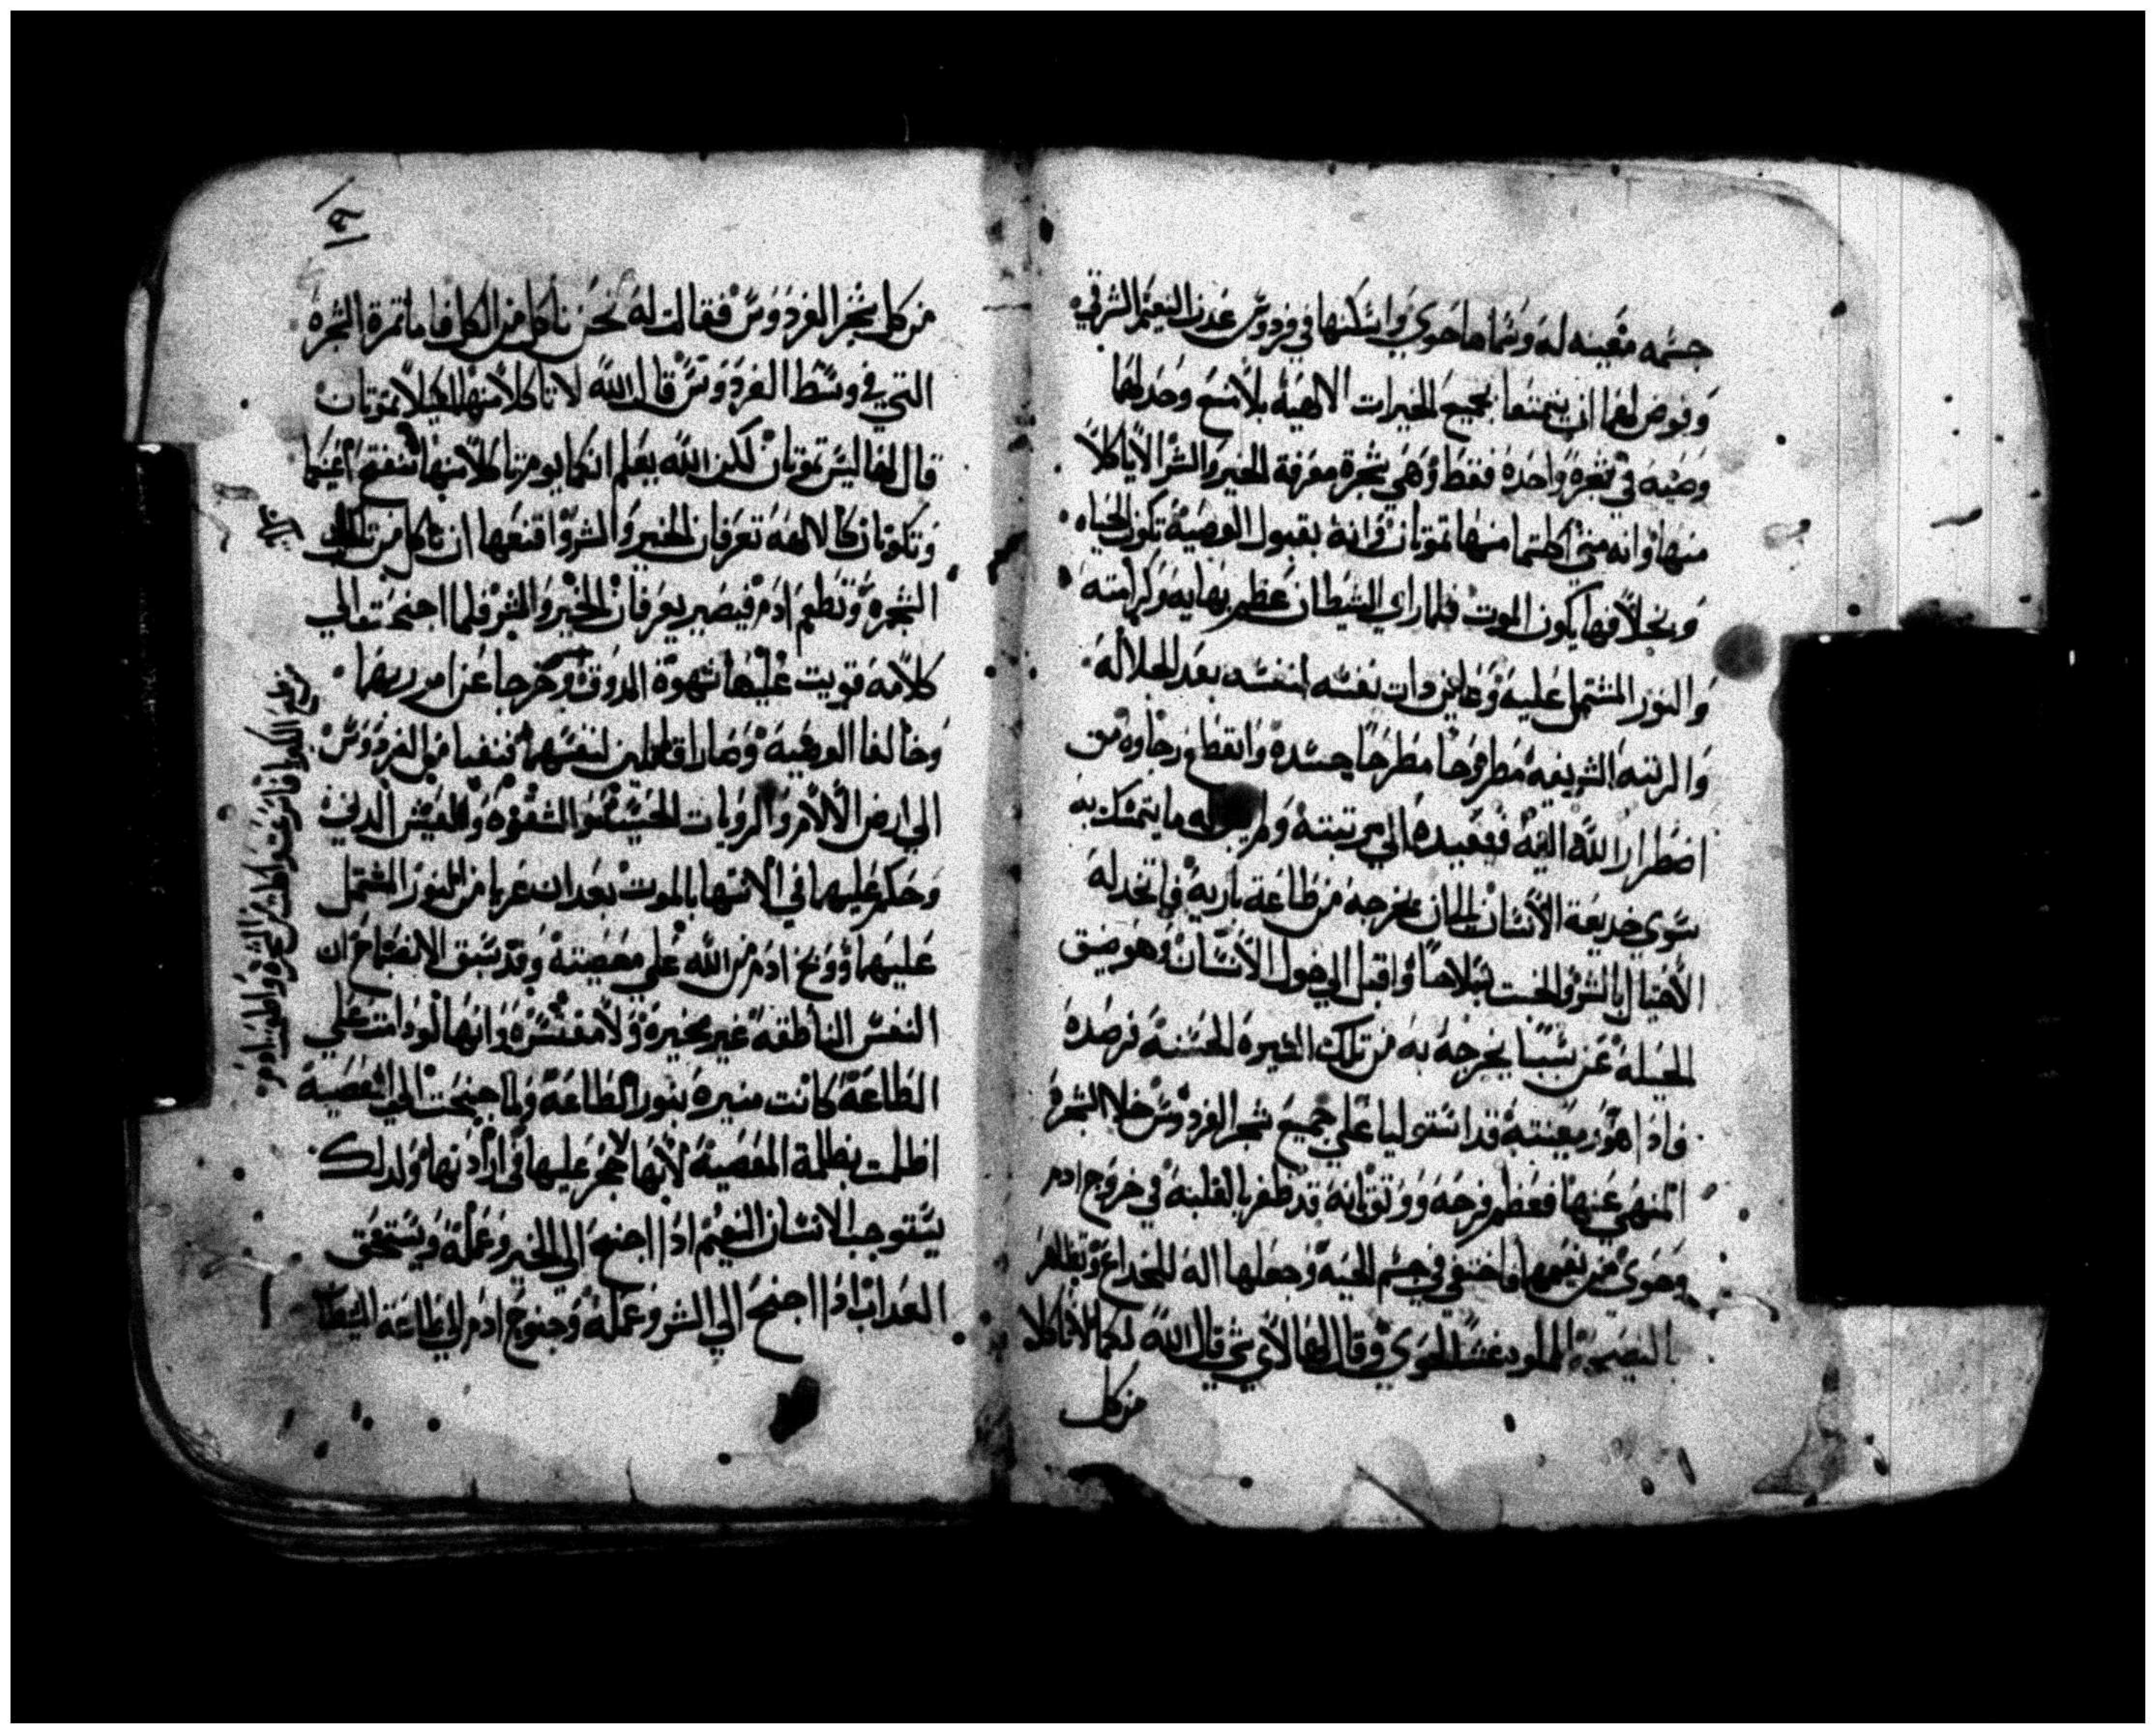 جسمه معينه له وسماها حوي واسكنها في فردوس عدن النعيم الشرقي
وفوض لهما ان يتمتعا بجميع الخيرات الالهية بلا منع وحد لهما
وصيه في شجره واحده فقط وهي شجرة معرفة الخير والشر الا ياكلا
منها وانه متي اكلتما منها تموتان وانه بقبول الوصية تكون الحياه
وبخلافها يكون الموت فلما راي الشيطان عظم بهايه وكرامته
والنور المشتمل عليه وعاين ذات نفسه لنفسه بعد الجلاله
والرتبه الشريفه مطروحا مطرحا حسده وانقطع رجاوه من
اضطرار الله اليه فيعيده الي مرتبته ولم يبق له ما يتمسك به
سوي خديعة الانسان بان يخرجه من طاعة باريه فاتخد له
الاحتيال بالشر والخبث سلاحا واقبل الي حول الانسان وهو ضيق
الحيلة عن سببا يخرجه به من تلك الخيره الحسنة فرصده
فادا هو ومعينته قد استوليا علي جميع شجر الفردوس خلا الشجره
المنهي عنها فعظم فرحه ووثق بانه قد ظفر بالغلبة في خروج ادم
وحوي من نعيمهما فاختفي في جسم الحية وجعلها اله للخداع وتظاهر
بالنصيحة المملوه غشا لحوي وقال لها لاي شي قال الله لكما لا تاكلا
من كل
٩
من كل شجر الفردوس فقالت له نحن ناكل من الكل فاما ثمرة الشجره
التي في وسط الفردوس قال الله لا تاكلا منها لكيلا تموتان
قال لها ليس تموتان لكن الله يعلم انكما يوم تاكلا منها تنفتح اعينكما
وتكونان كالالهه تعرفان الخير والشر واقنعها ان تاكل من تلك
الشجره وتطعم ادم فيصير يعرفان الخير والشر فلما اجنحت الي
كلامه قويت عليها شهوة الدوق وخرجا عن امر ربهما
وخالفا الوصية وصارا قاتلين لنفسهما فنفيا من الفردوس
الي ارض الالام والرويات الخسيسه والشقوه والعيش الدني
وحكم عليهما في الانتها بالموت بعد ان عريا من النور المشتمل
عليهما ووبخ ادم من الله علي معصيته وقد سبق الايضاح ان
النفس الناطقه غير مخيره ولا مقتسره وانها لو دامت علي
الطاعة كانت منيره بنور الطاعة ولما جنحت الي المعصية
اظلمت بظلمة المعصية لانها لا حجز عليها في ارادتها ولدلك
يستوجب الانسان النعيم ادا اجنح الي الخير وعمله ويستحق
العداب ادا اجنح الي الشر وعمله وجنوح ادم الي طاعة الشيطان